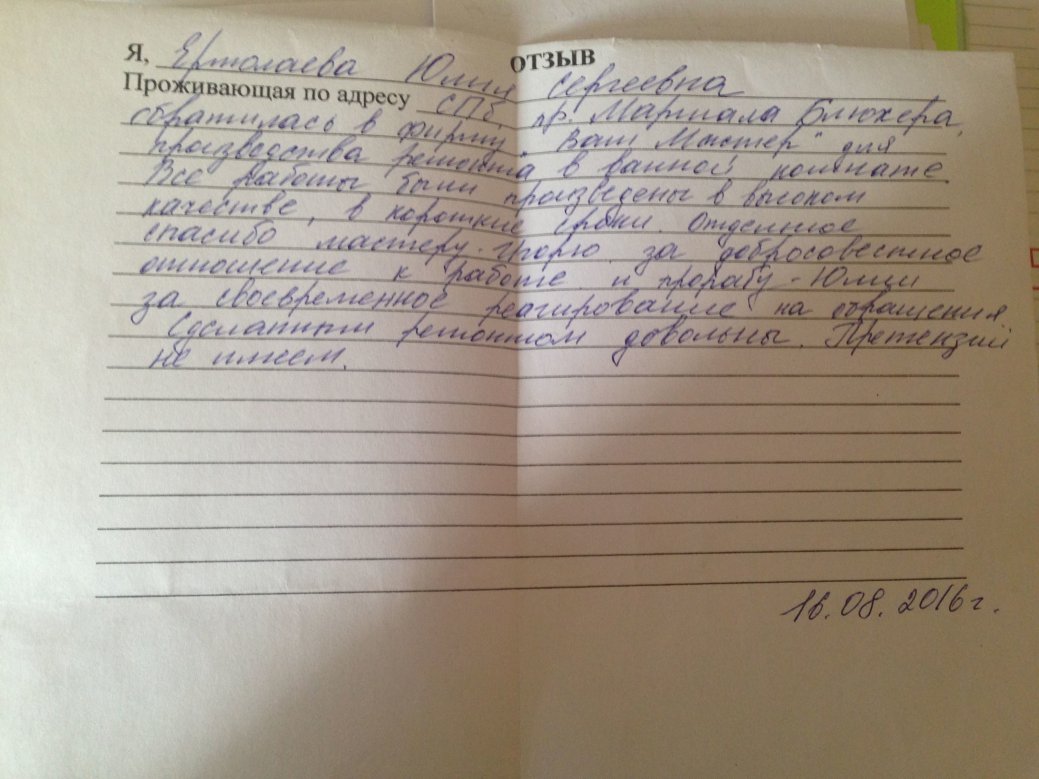 ОТЗЫВ
Я, Ермолаева Юлия Сергеевна
Проживающая по адресу СПб, пр. Маршала Блюхера,
обратилась в фирму "Ваш Мастер" для
производства ремонта в ванной комнате.
Все работы были произведены в высоком
качестве, в короткие сроки. Отдельное
спасибо мастеру - Игорю за добросовестное
отношение к работе и прорабу - Юлии
за своевременное реагирование на обращения.
Сделанным ремонтом довольны. Претензий
не имеем.
16.08.2016 г.